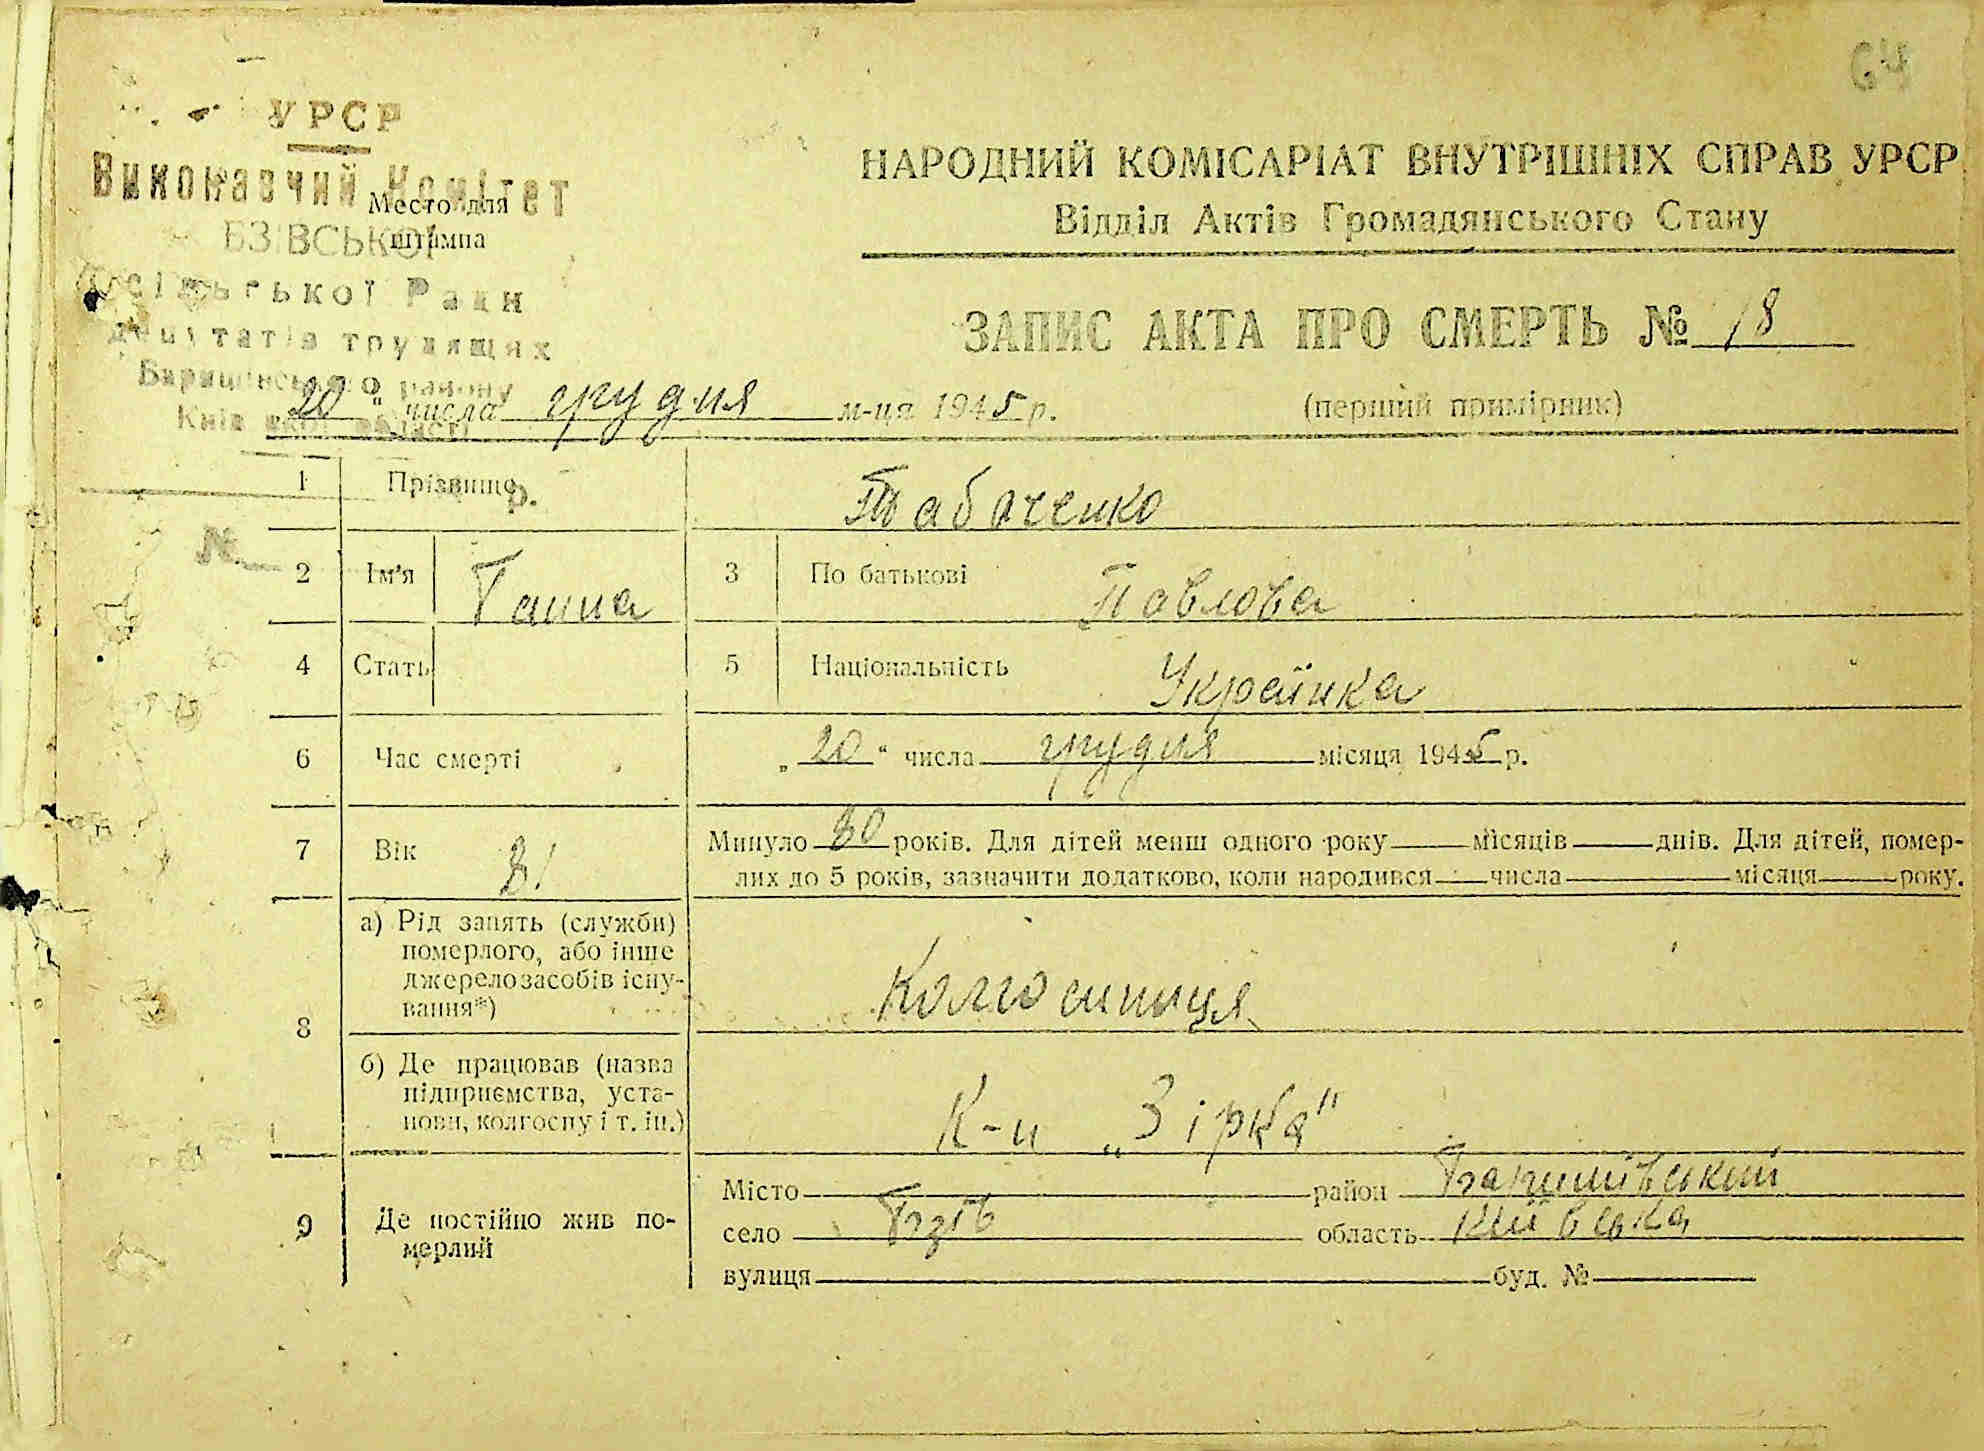 64
УРСР
Виконавчий Комітет
Место для
штампа
БЗІВСЬКОЇ
сільської Ради
депутатів трудящих
Баришівського району
Київської області
НАРОДНИЙ КОМІСАРІАТ ВНУТРІШНІХ СПРАВ УРСР
Відділ Актів Громадянського Стану
ЗАПИС АКТА ПРО СМЕРТЬ № 18
(перший примірник)
20 " числа грудня м-ця 1945 р.
1 Прізвище Табаченко
р.
№
2 Ім'я Ганна 3 По батькові Павлова
4 Стать 5 Національність Українка
6 Час смерті „ 20 “ числа грудня місяця 1945 р.
7 Вік 31 Минуло 30 років. Для дітей менш одного року місяців днів. Для дітей, помер-
лих до 5 років, зазначити додатково, коли народився числа місяця року.
8 а) Рід занять (служби)
померлого, або інше
джерело засобів існу-
вання*)
Колгоспниця
б) Де працював (назва
підприємства, уста-
нови, колгоспу і т. ін.)
К-п „Зірка"
9 Де постійно жив по-
мерлий
Місто район Баришівський
село Бзів область Київська
вулиця буд. №